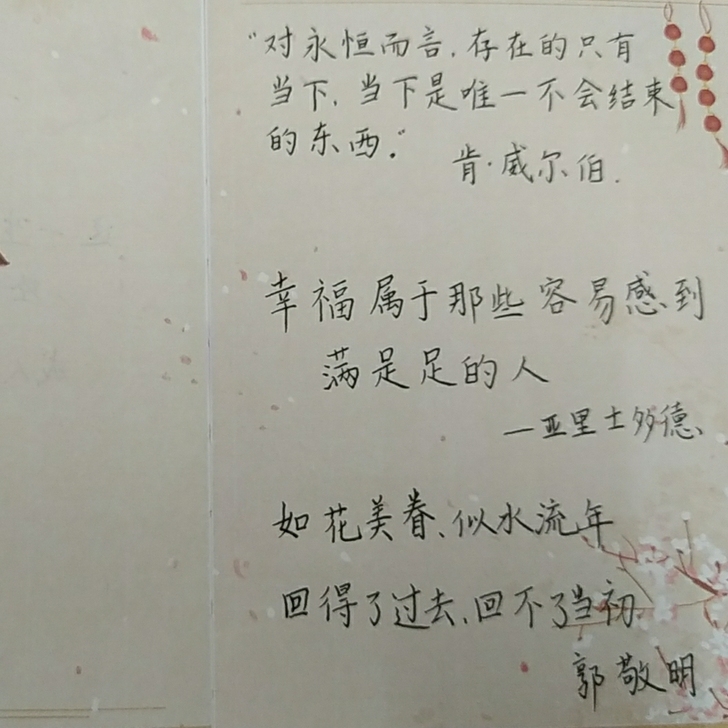 “对永恒而言,存在的只有
当下,当下是唯一不会结束
的东西。”
肯·威尔伯.
幸福属于那些容易感到
满足足的人
—亚里士多德、
如花美眷、似水流年
回得了过去,回不了当初
郭敬明